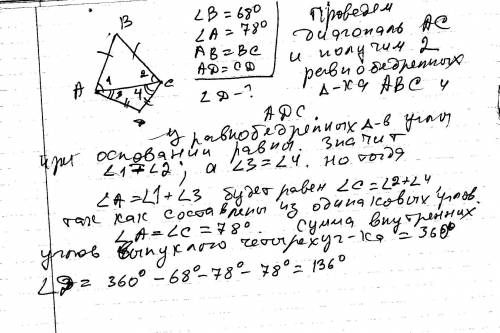 B
A
C
D
1
2
3
4
∠B = 68°
∠A = 78°
AB = BC
AD = CD
∠D - ?
Проведем
диагональ AC
и получим 2
равнобедренных
Δ-ка ABC и
ADC.
У равнобедренных Δ-в углы
при основании равны. Значит
∠1 = ∠2, а ∠3 = ∠4. Но тогда
∠A = ∠1 + ∠3 будет равен ∠C = ∠2 + ∠4,
так как составлены из одинаковых углов.
∠A = ∠C = 78°. Сумма внутренних
углов выпуклого четырехуг-ка = 360°
∠D = 360° - 68° - 78° - 78° = 136°